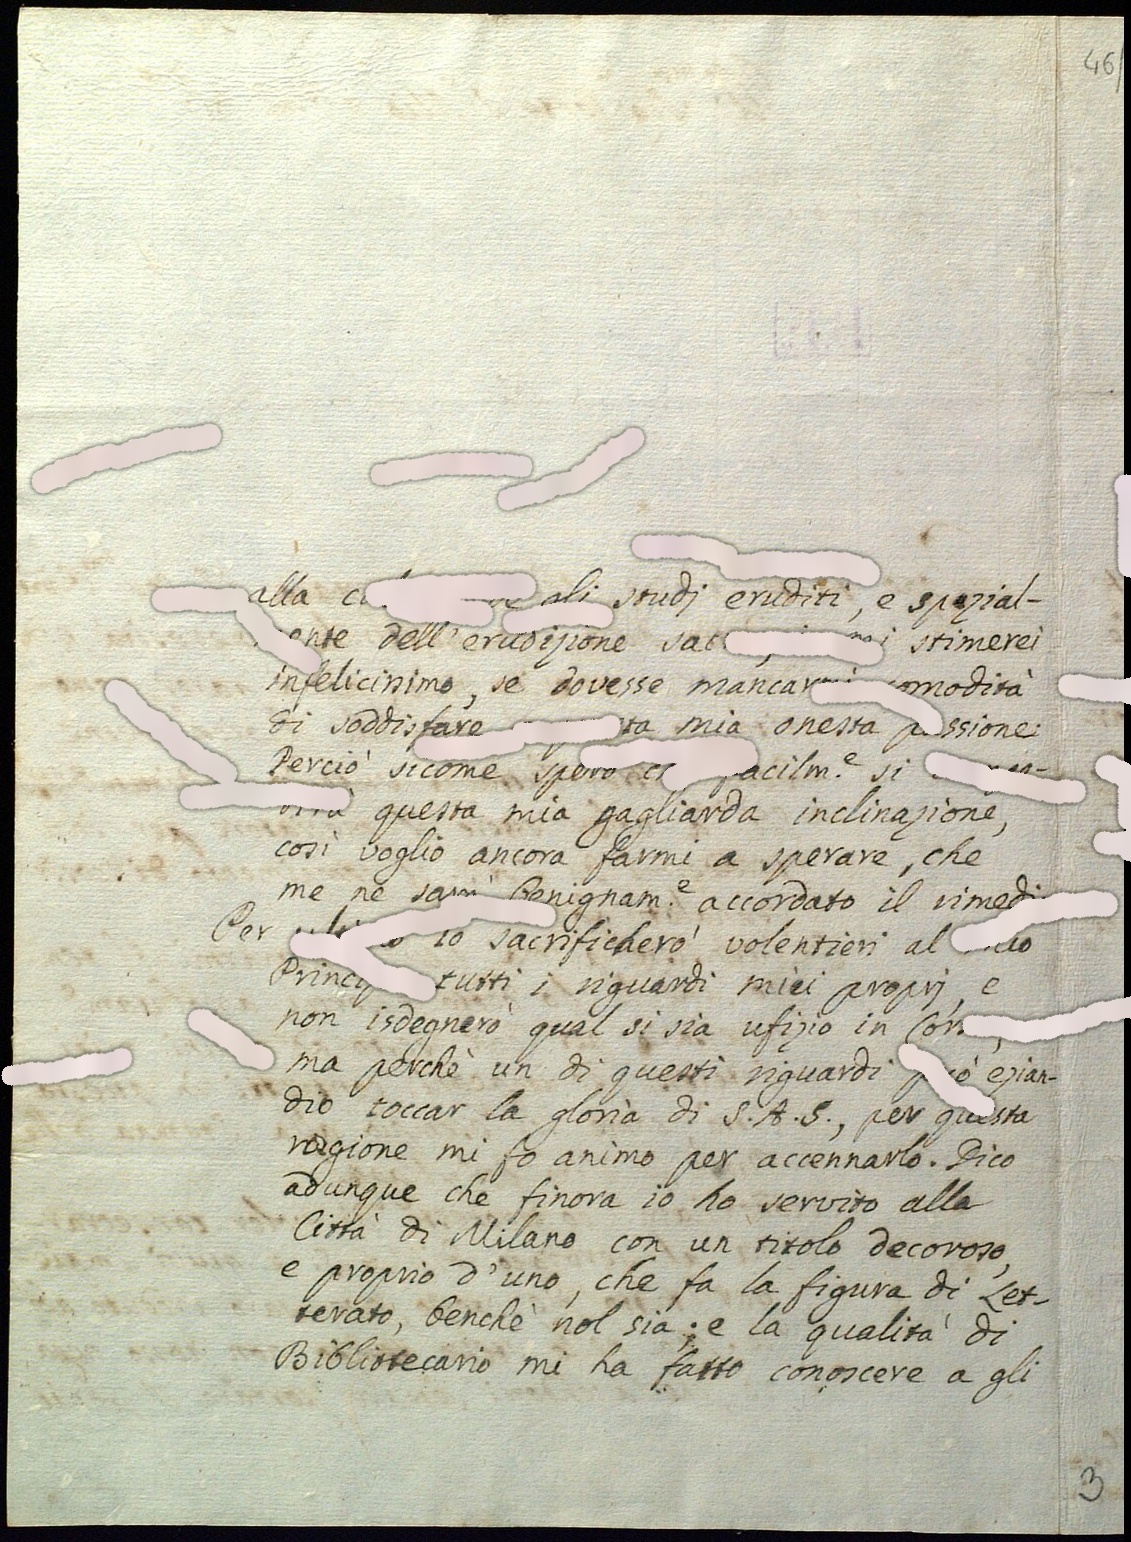 46
alla gli studj eruditi, e spezial-
dell'erudizione stimerei
infelicissimo, se dovesse mancarmi comodità
di soddisfare mia onesta passione:
Perciò sicome spero facilm.e si
questa mia gagliarda inclinazione,
così voglio ancora farmi a sperare, che
me ne sarà benignam.e accordato il
Per io sacrificherò volentieri al
tutti i riguardi miei proprj, e
non isdegnerò qual si sia ufizio in
ma perchè un di questi riguardi può ezian-
dio toccar la gloria di S.A.S., per questa
ragione mi fo animo per accennarlo. Dico
adunque che finora io ho servito alla
Città di Milano con un titolo decoroso,
e proprio d'uno, che fa la figura di Let-
terato, benchè nol sia; e la qualità di
Bibliotecario mi ha fatto conoscere a gli
3